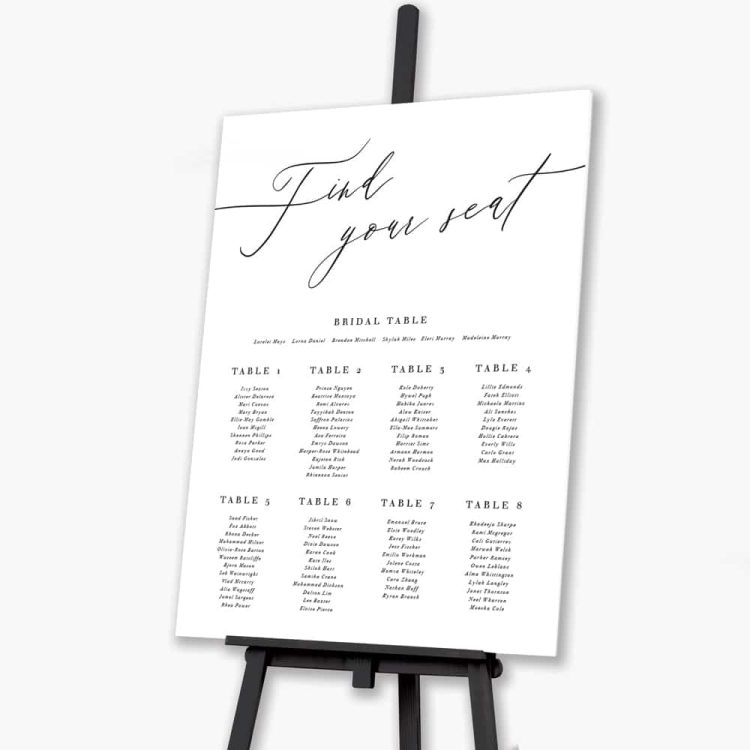 Find
your seat
BRIDAL TABLE
Lorelei Mays Lorna Daniel Brendan Mitchell Shylah Miles Elori Murray Madeleine Murray
TABLE 1
Issy Sexton
Alister Delarosa
Mari Cuevas
Mary Bryan
Ellie-May Gamble
Joan Mcgill
Shannon Phillips
Rosa Parker
Anaya Good
Jodi Gonzales
TABLE 2
Prince Nguyen
Beatrice Montoya
Romi Alvarez
Tayyibah Denton
Saffron Palacios
Henna Lowery
Ava Ferreira
Emrys Dawson
Harper-Rose Whitehead
Kajetan Rich
Jamila Harper
Rhiannon Senior
TABLE 3
Kole Doherty
Hywel Pugh
Habiba Juarez
Alaw Kaiser
Abigail Whitaker
Ella-Mae Sommers
Filip Roman
Harriet Sims
Armann Harmon
Norah Woodcock
Raheem Crouch
TABLE 4
Lillie Edmunds
Farah Elliott
Michaela Martins
Ali Sanchez
Lyla Everett
Dougie Rojas
Hollie Cabrera
Everly Wills
Carla Grant
Max Halliday
TABLE 5
Saad Fisher
Fox Abbott
Rhona Decker
Muhammad Milner
Olivia-Rose Barton
Waseem Ratcliffe
Bjorn Mason
Seb Wainwright
Vlad Mccarty
Alia Wagstaff
Jamel Sargent
Rhea Power
TABLE 6
Jibril Snow
Steven Webster
Noel Reese
Dixie Dawson
Karan Cook
Kate Iles
Shiloh Hart
Samiha Crane
Mohammad Dickson
Dalton Lim
Leo Baxter
Eloise Pierce
TABLE 7
Emanuel Bruce
Elsie Woodley
Korey Wilks
Jess Fischer
Emilia Workman
Jolene Costa
Hamza Whiteley
Cora Shang
Nathan Huff
Kyran Branch
TABLE 8
Khadeeja Sharpe
Rami Mcgregor
Cali Gutierrez
Marwah Walsh
Parker Ramsey
Owen Leblanc
Alma Whittington
Lylah Langley
Janet Thornton
Noel Wharton
Moesha Cole